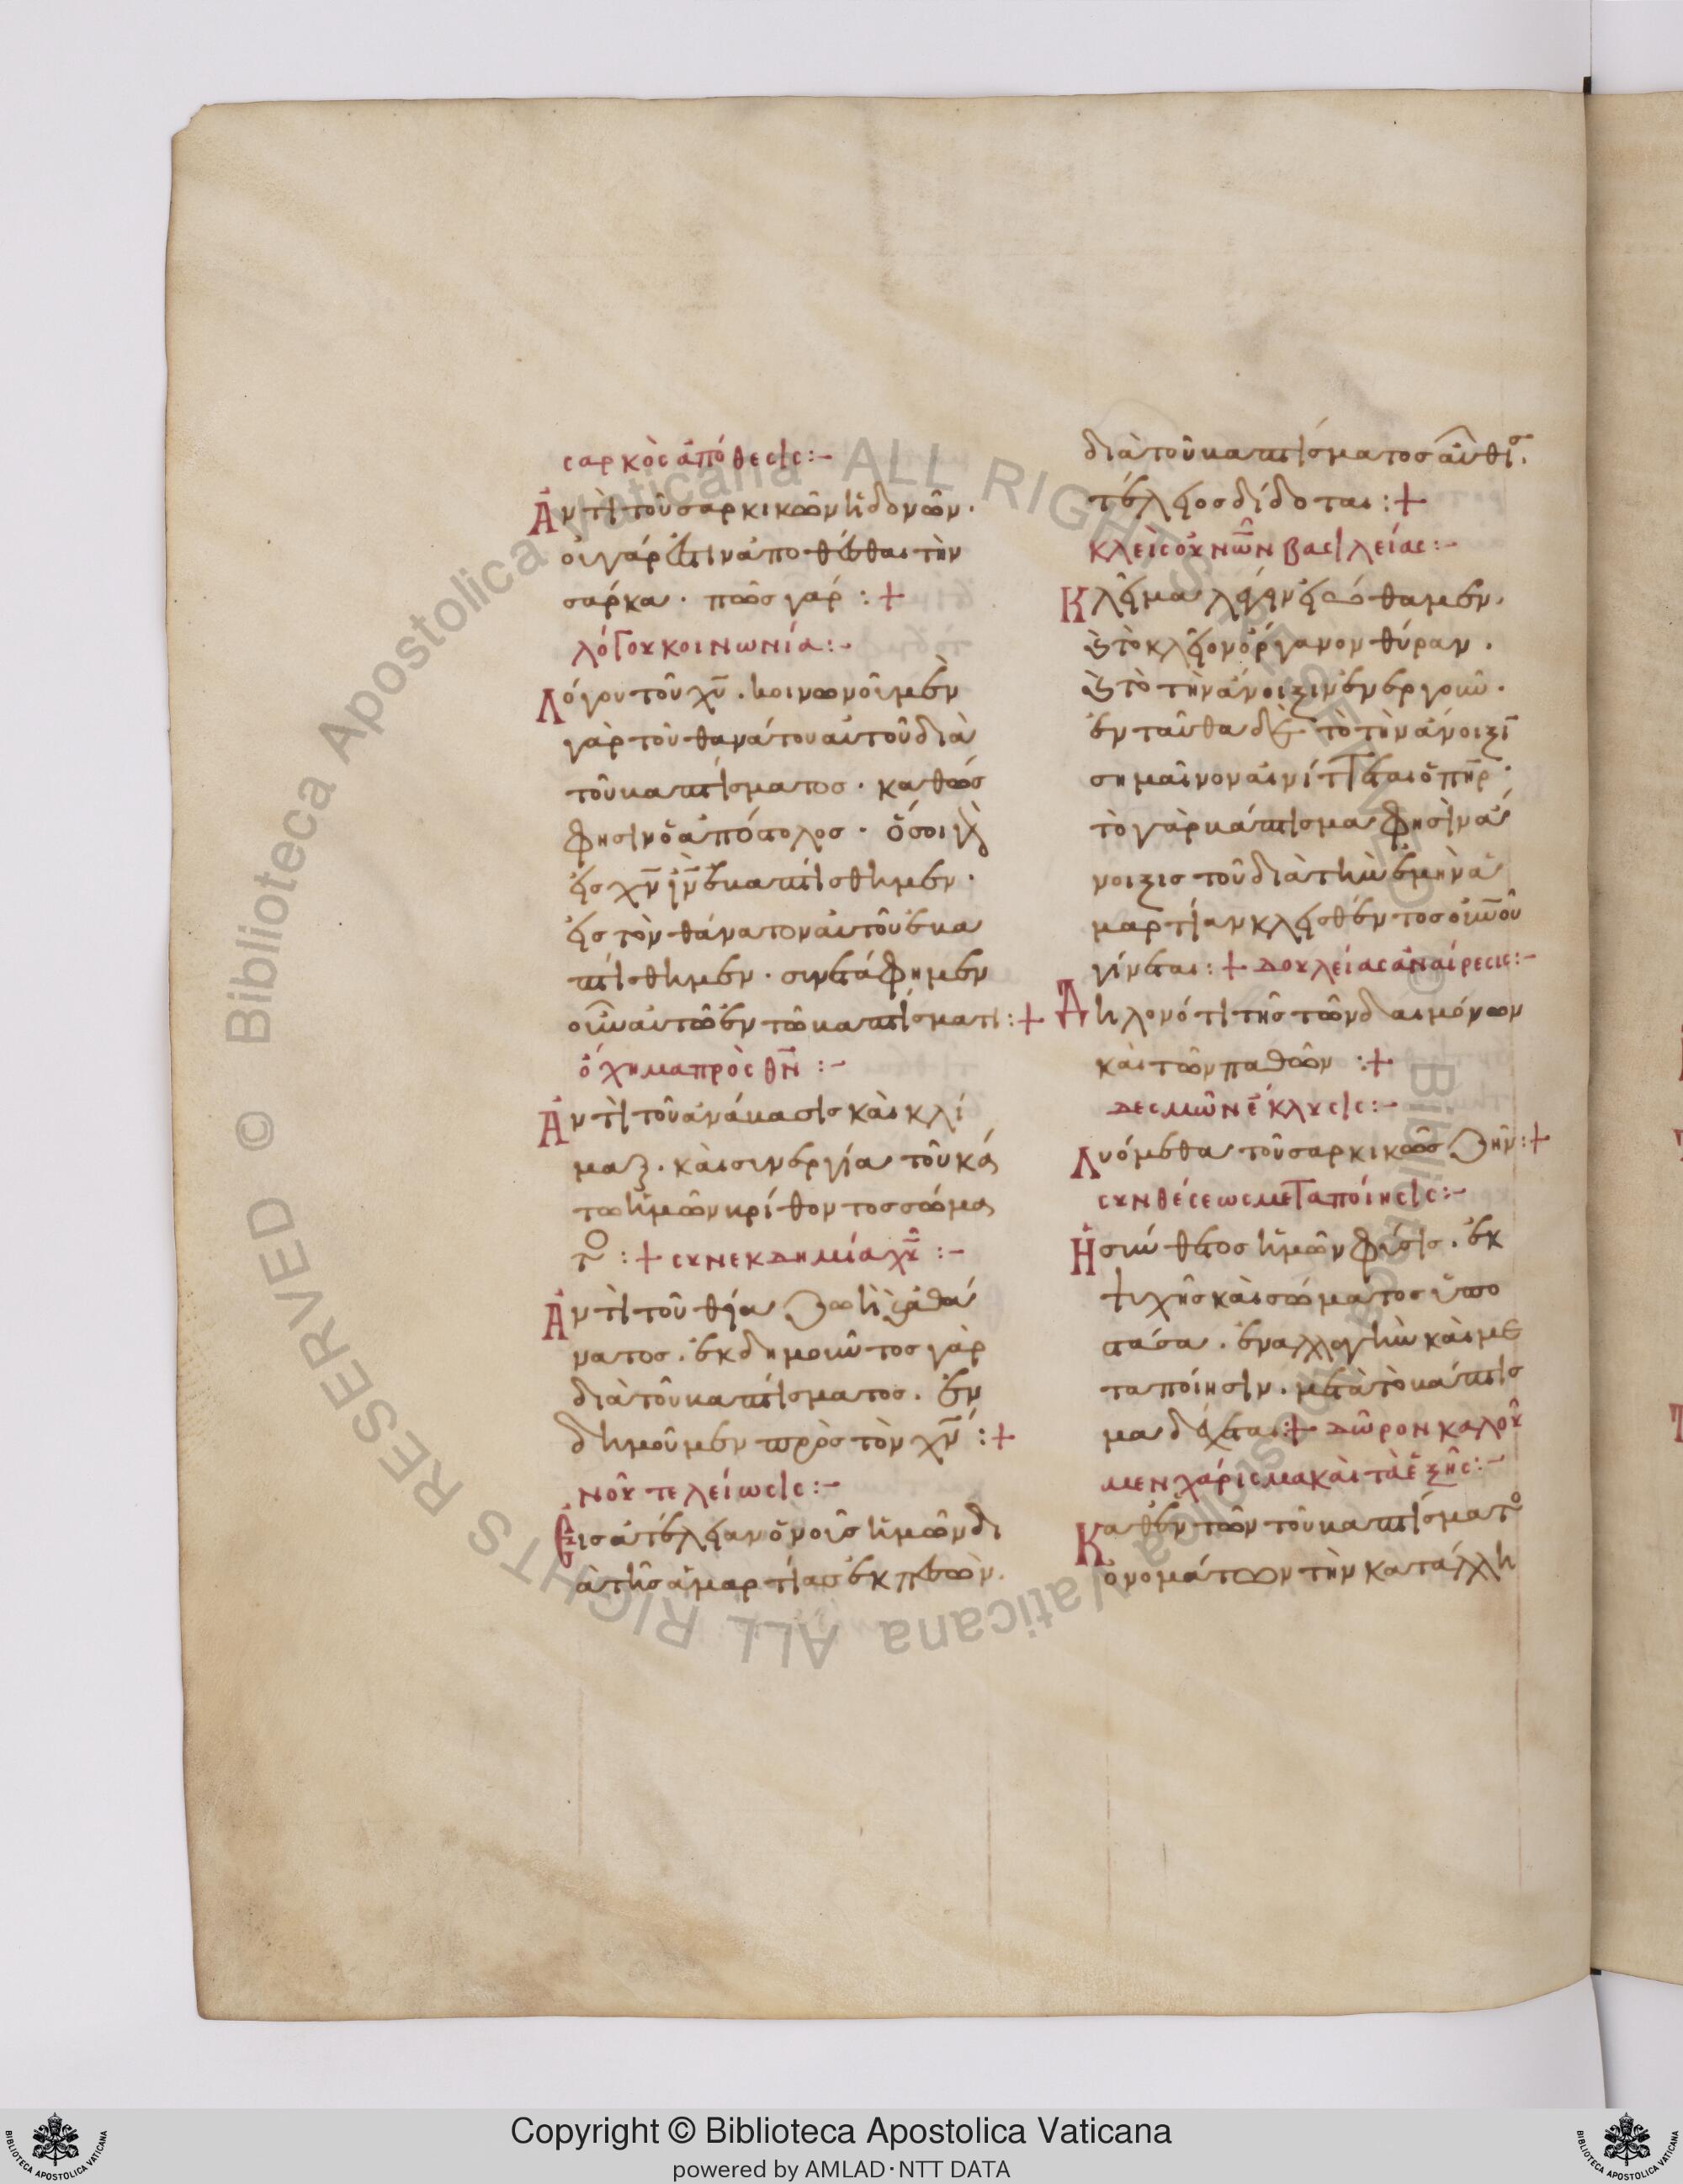 σαρκὸς ἀπόθεσις :-
Ἀντὶ τοῦ σαρκικῶν ἡδονῶν.
οὐ γάρ ἐστιν ἀποθέσθαι τὴν
σάρκα. πῶς γάρ : +
λόγου κοινωνία :-
Λόγου τοῦ χυ. κοινωνοῦμεν
γὰρ τοῦ θανάτου αὐτοῦ διὰ
τοῦ βαπτίσματος. καθώς
φησιν ὁ ἀπόστολος. ὅσοι γὰρ
εἰς χν ιν ἐβαπτίσθημεν.
εἰς τὸν θάνατον αὐτοῦ ἐβα
πτίσθημεν. συνετάφημεν
οὖν αὐτῶ ἐν τῶ βαπτίσματι : +
ὄχημα πρὸς θν :-
Ἀντὶ τοῦ ἀνάβασις καὶ κλί
μαξ. καὶ συνεργία τοῦ κά
τω ἡμῶν βρίθοντος σώμα
το : + συνεκδημία χυ :-
Ἀντὶ τοῦ θεία ζωὴ καὶ ἀθά
νατος. ἐκδημοῦντος γὰρ
διὰ τοῦ βαπτίσματος. ἐν
δημοῦμεν πρὸς τὸν χν : +
νοῦ τελείωσις :-
Εἰς ἀτέλειαν ὁ νοῦς ἡμῶν δι
ὰ τῆς ἁμαρτίας ἐκπεσὼν.
διὰ τοῦ βαπτίσματος αὖθις.
τέλειος δίδοται : +
κλεὶς οὐνῶν βασιλείας :-
Κλεῖμα λέγειν εἰώθαμεν.
καὶ τὸ κλεῖον ὄργανον θύραν.
καὶ τὸ τὴν ἄνοιξιν ἐνεργοῦν.
ἐνταῦθα δὲ τὸ τὴν ἄνοιξι
σημαῖνον αἰνίττεται ὁ πηρ.
τὸ γὰρ βάπτισμα φησὶν ἀ
νοιξις τοῦ διὰ τὴν ἐμὴν ἁ
μαρτίαν κλεισθέντος οὐνοῦ
γίνεται : + δουλείας ἀναίρεσις :-
Δηλονότι τῆς τῶν δαιμόνων
καὶ τῶν παθῶν : +
δεσμῶν ἔκλυσις :-
Λυόμεθα τοῦ σαρκικῶς ζῆν : +
συνθέσεως μεταποίησις :-
Ἡ σύνθετος ἡμῶν φύσις. ἐκ
ψυχῆς καὶ σώματος ὑπο
στᾶσα. ἐναλλαγὴν καὶ με
ταποίησιν. μετὰ τὸ βάπτισ
μα δέχεται : + δῶρον καλοῦ
μεν χάρισμα καὶ τὰ ἑξῆς :-
Καθ' ἓν τῶν τοῦ βαπτίσματο
ὀνομάτων τὴν κατάλλη
Copyright © Biblioteca Apostolica Vaticana
powered by AMLAD·NTT DATA